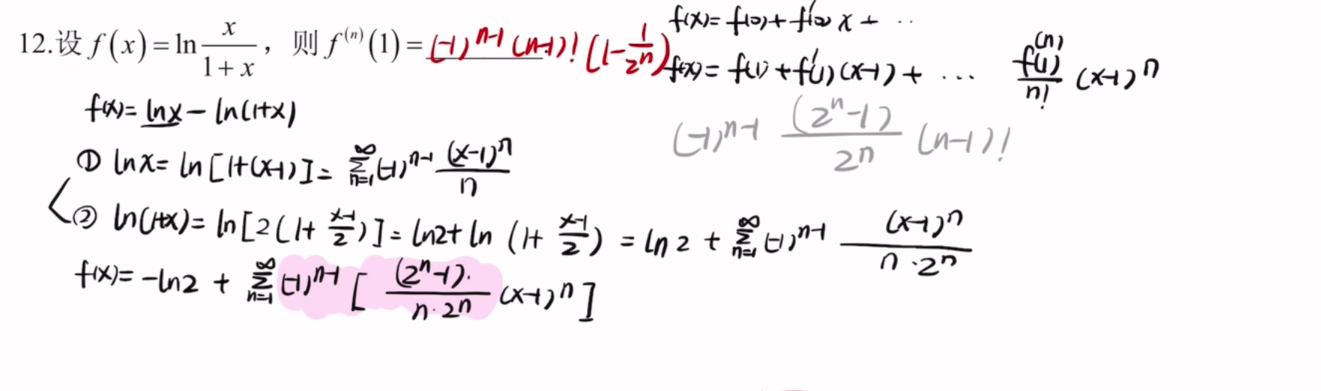 f(x)=f(0)+f'(0)x+ ··
12.设 f(x)=ln x/(1+x)，则 f⁽ⁿ⁾(1)=(-1)ⁿ⁻¹(n-1)!(1-1/2ⁿ)
f(x)=f(1)+f'(1)(x-1)+ ··· f⁽ⁿ⁾(1)/n! (x-1)ⁿ
f(x)=lnx-ln(1+x)
(-1)ⁿ⁻¹ (2ⁿ-1)/2ⁿ (n-1)!
① lnx=ln[1+(x-1)]=∑_{n=1}^{∞}(-1)ⁿ⁻¹ (x-1)ⁿ/n
② ln(1+x)=ln[2(1+(x-1)/2)]=ln2+ln(1+(x-1)/2)=ln2+∑_{n=1}^{∞}(-1)ⁿ⁻¹ (x-1)ⁿ/(n·2ⁿ)
f(x)=-ln2+∑_{n=1}^{∞}(-1)ⁿ⁻¹[(2ⁿ-1)·/(n·2ⁿ) (x-1)ⁿ]